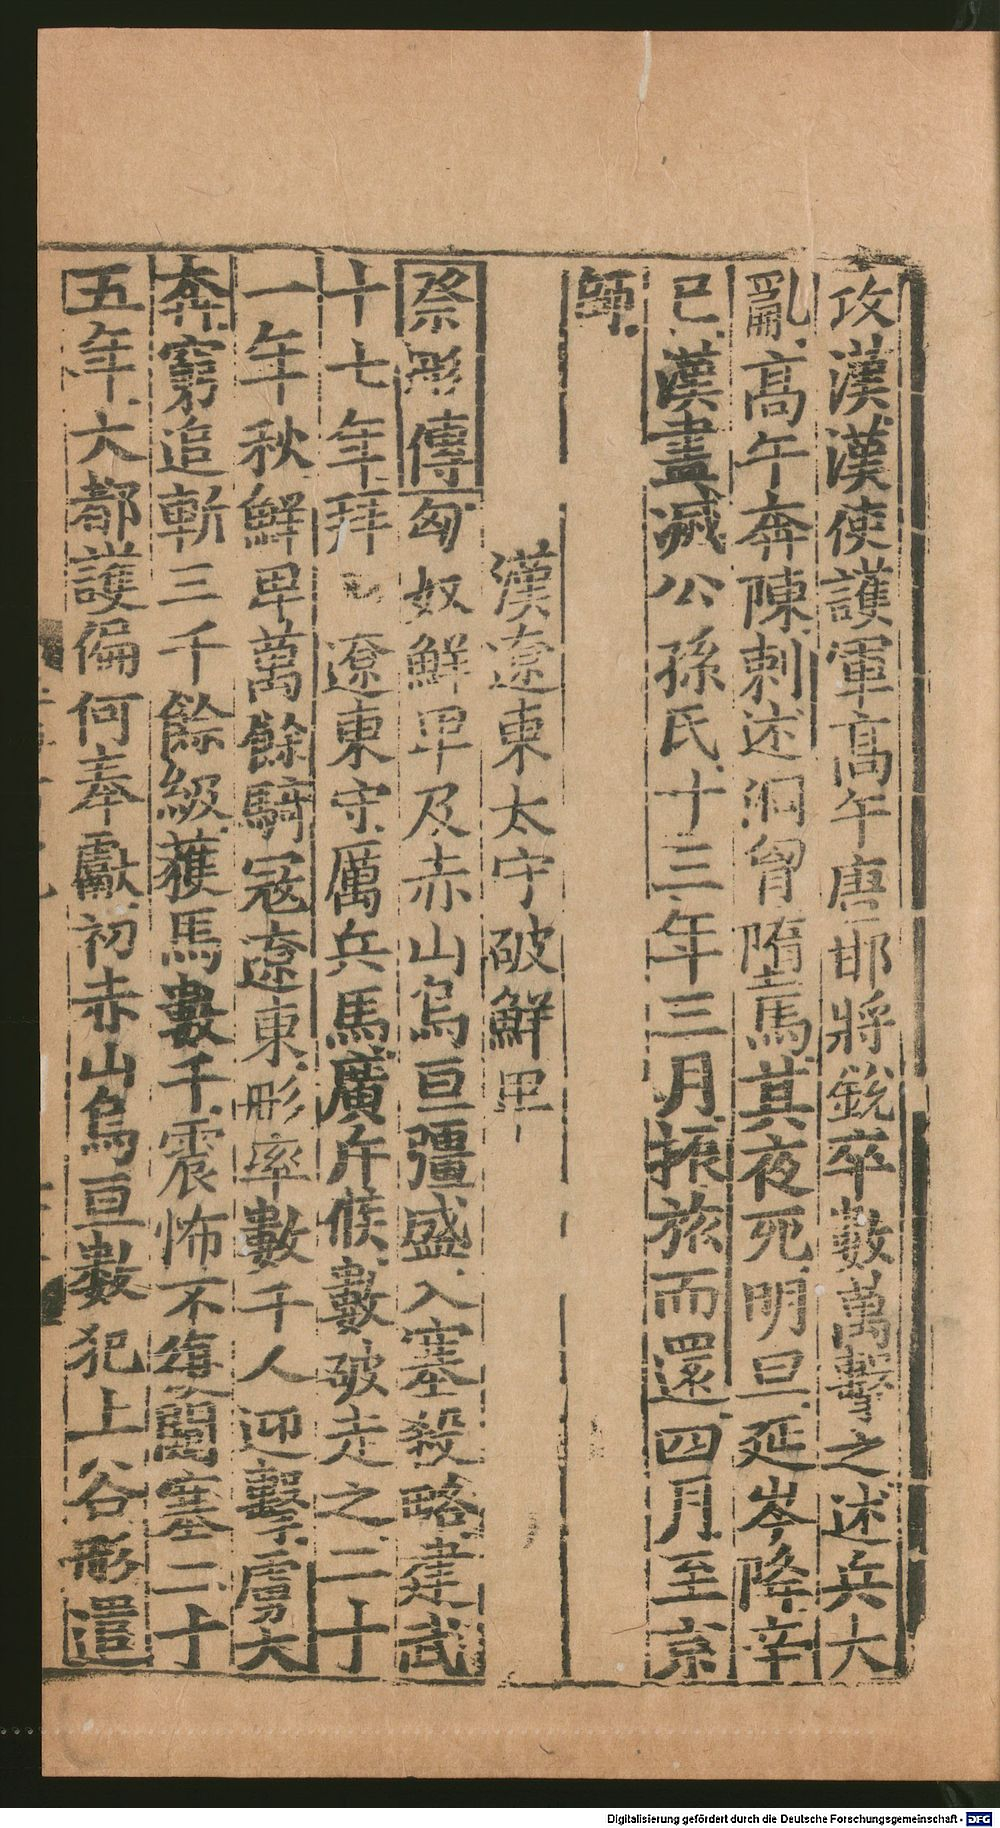 攻漢漢使護軍高午唐邯將銳卒數萬擊之述兵大
亂高午奔陳刺述洞胷墮馬其夜死明旦延岑降辛
巳漢盡滅公孫氏十三年三月振旅而還四月至京
師
漢遼東太守破鮮卑
祭肜傳匈奴鮮卑及赤山烏亘彊盛入塞殺略建武
十七年拜遼東守厲兵馬廣斥候數破走之二十
一年秋鮮卑萬餘騎寇遼東肜率數千人迎擊虜大
奔窮追斬三千餘級獲馬數千震怖不復闚塞二十
五年大都護偏何奉獻初赤山烏亘數犯上谷肜還
Digitalisierung gefördert durch die Deutsche Forschungsgemeinschaft - DFG